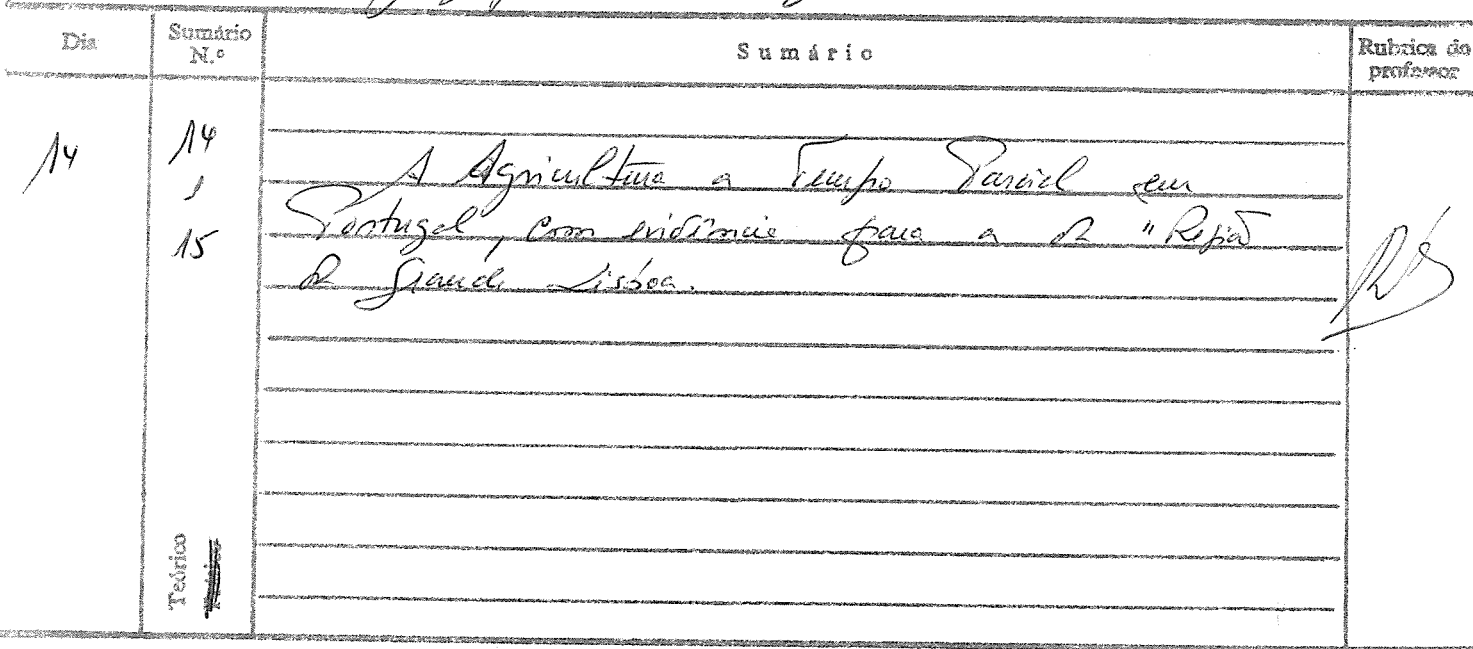 Dia
Sumário N.º
Sumário
Rubrica do professor
14
14
,
15
A Agricultura a Tempo Parcial em
Portugal, com evidência para a da "Região
de Grande Lisboa.
Teórico